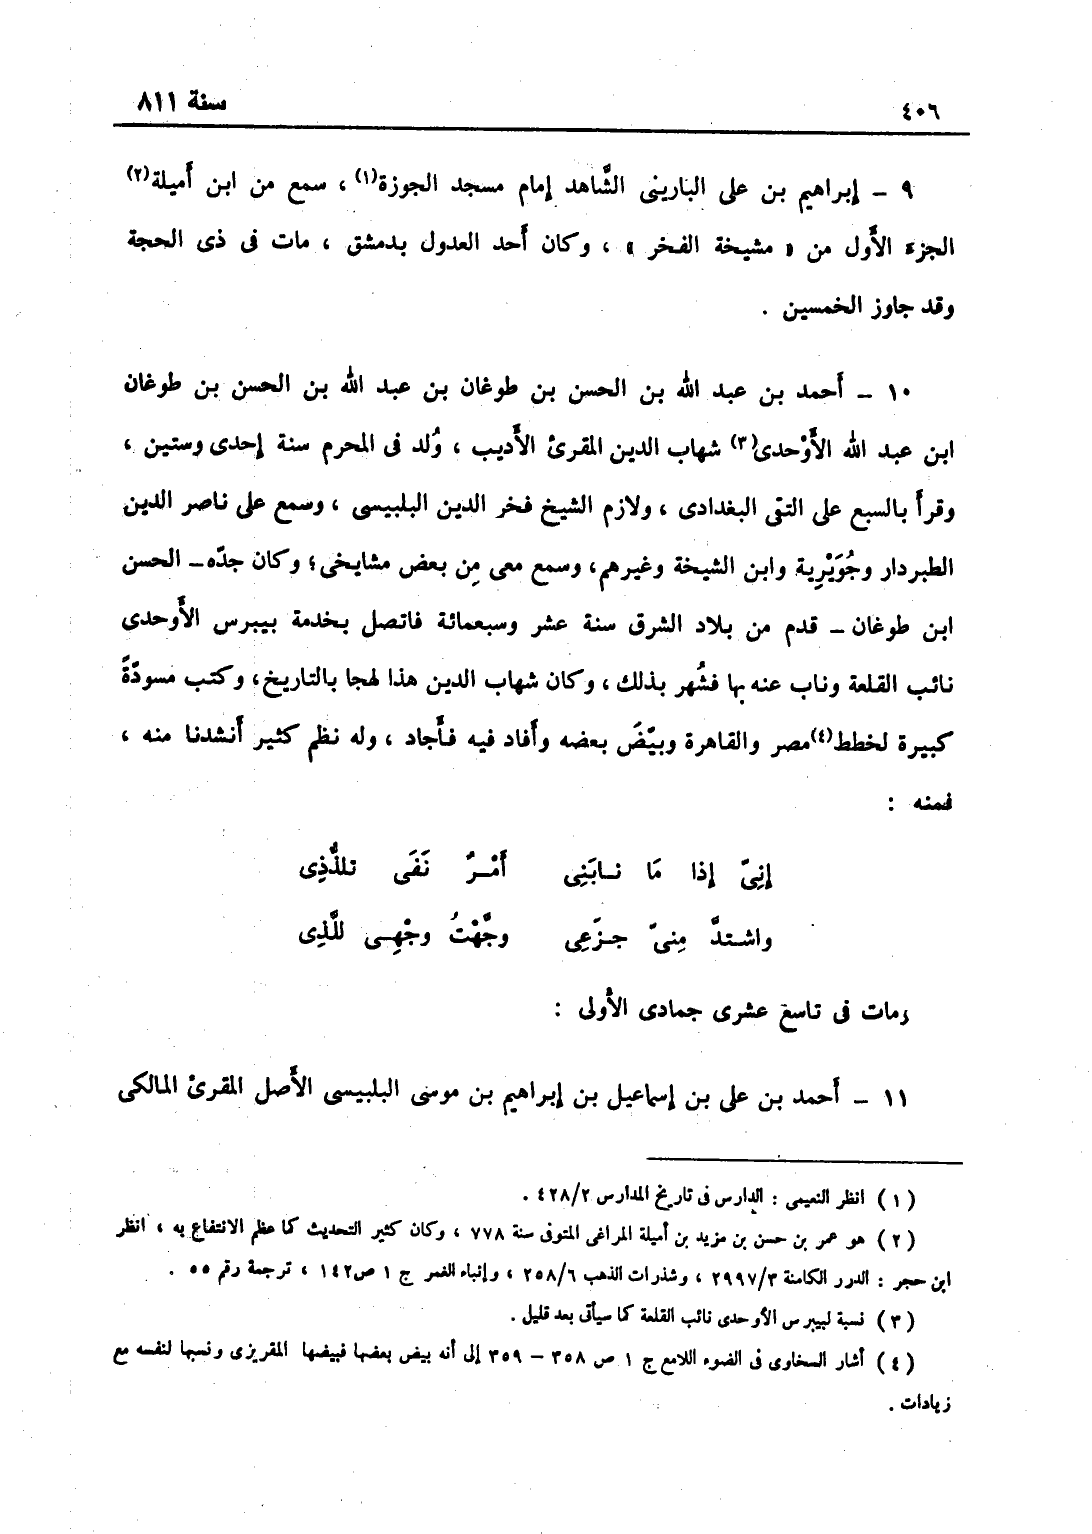 ٤٠٦
سنة ٨١١
٩ – إبراهيم بن على البارينى الشَّاهد إمام مسجد الجوزة(١) ، سمع من ابن أَميلة(٢)
الجزء الأَول من « مشيخة الفخر » ، وكان أَحد العدول بدمشق ، مات فى ذى الحجة
وقد جاوز الخمسين .
١٠ – أَحمد بن عبد الله بن الحسن بن طوغان بن عبد الله بن الحسن بن طوغان
ابن عبد الله الأَوْحدى(٣) شهاب الدين المقرئ الأَديب ، وُلد فى المحرم سنة إحدى وستين ،
وقرأَ بالسبع على التقى البغدادى ، ولازم الشيخ فخر الدين البلبيسى ، وسمع على ناصر الدين
الطبردار وجُوَيْرِية وابن الشيخة وغيرهم، وسمع معى مِن بعض مشايخى؛ وكان جدّه – الحسن
ابن طوغان – قدم من بلاد الشرق سنة عشر وسبعمائة فاتصل بخدمة بيبرس الأَوحدى
نائب القلعة وناب عنه بها فشُهر بذلك ، وكان شهاب الدين هذا لهجا بالتاريخ، وكتب مسودّةً
كبيرة لخطط(٤) مصر والقاهرة وبيّضَ بعضه وأَفاد فيه فأَجاد ، وله نظم كثير أَنشدنا منه ،
فمنه :
إنِىّ إذا مَا نـابَنِى أَمْـرٌ نَفَى تلذُّذِى
واشـتدَّ مِنىّ جـزَعِى وجَّهْتُ وجْهِـى للَّذِى
ومات فى تاسع عشرى جمادى الأُولى :
١١ – أَحمد بن على بن إسماعيل بن إبراهيم بن موسى البلبيسى الأَصل المقرئ المالكى
(١) انظر النعيمى : الدارس فى تاريخ المدارس ٤٢٨/٢ .
(٢) هو عمر بن حسن بن مزيد بن أميلة المراغى المتوفى سنة ٧٧٨ ، وكان كثير التحديث كما عظم الانتفاع به ، انظر
ابن حجر : الدرر الكامنة ٢٩٩٧/٣ ، وشذرات الذهب ٢٥٨/٦ ، وإنباء الغمر ج ١ ص١٤٢ ، ترجمة رقم ٥٥ .
(٣) نسبة لبيبرس الأوحدى نائب القلعة كما سيأتى بعد قليل .
(٤) أشار السخاوى فى الضوء اللامع ج ١ ص ٣٥٨ – ٣٥٩ إلى أنه بيض بعضها فبيضها المقريزى ونسبها لنفسه مع
زيادات .